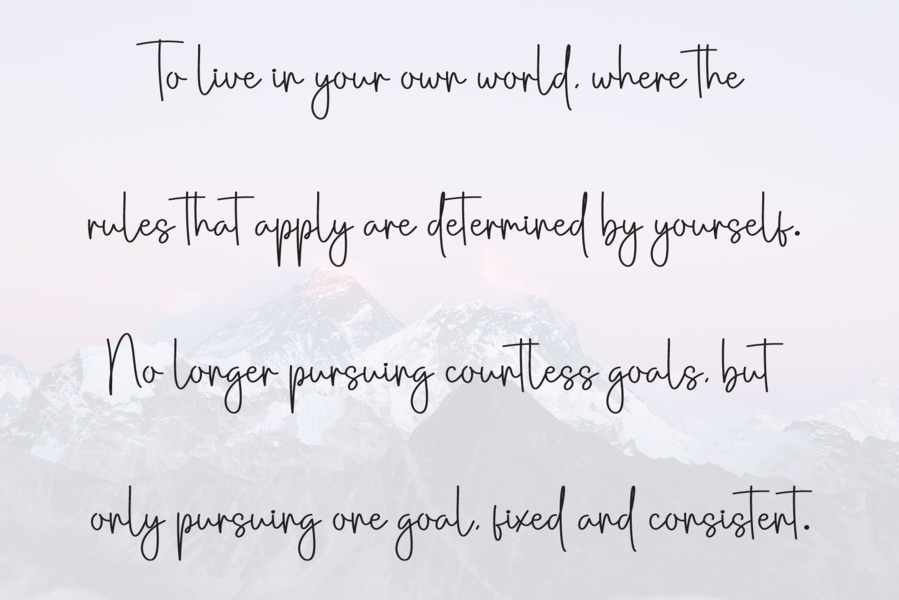 To live in your own world, where the
rules that apply are determined by yourself.
No longer pursuing countless goals, but
only pursuing one goal, fixed and consistent.